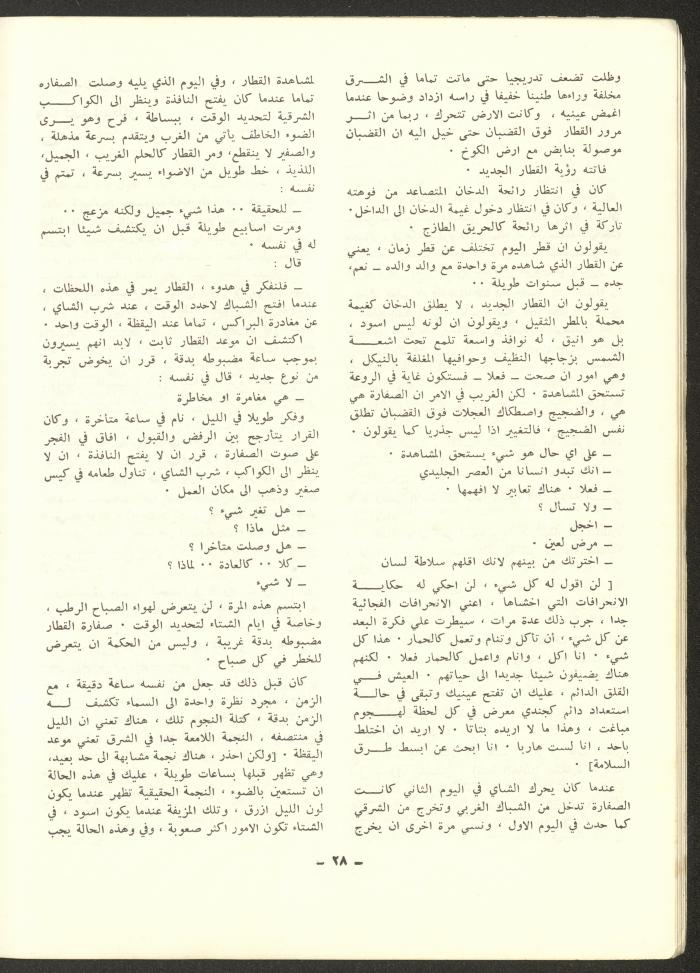 وظلت تضعف تدريجيا حتى ماتت تماما في الشـــرق
مخلفة وراءها طنينا خفيفا في راسه ازداد وضوحا عندما
اغمض عينيه ، وكانت الارض تتحرك ، ربما من اثـــر
مرور القطار فوق القضبان حتى خيل اليه ان القضبان
موصولة بنابض مع ارض الكوخ ٠
فاتته رؤية القطار الجديد ٠
كان في انتظار رائحة الدخان المتصاعد من فوهته
العالية ، وكان في انتظار دخول غيمة الدخان الى الداخل٠
تاركة في اثرها رائحة كالحريق الطازج ٠
يقولون ان قطر اليوم تختلف عن قطر زمان ، يعني
عن القطار الذي شاهده مرة واحدة مع والد والده ــ نعم،
جده ــ قبل سنوات طويلة ٠٠
يقولون ان القطار الجديد ، لا يطلق الدخان كغيمة
محملة بالمطر الثقيل ، ويقولون ان لونه ليس اسود ،
بل هو انيق ، له نوافذ واسعة تلمع تحت اشعـــــة
الشمس بزجاجها النظيف وحوافيها المغلفة بالنيكل ،
وهي امور ان صحت ــ فعلا ــ فستكون غاية في الروعة
تستحق المشاهدة ٠ لكن الغريب في الامر ان الصفارة هي
هي ، والضجيج واصطكاك العجلات فوق القضبان تطلق
نفس الضجيج ، فالتغيير اذا ليس جذريا كما يقولون ٠
ــ على اي حال هو شيء يستحق المشاهدة ٠
ــ انك تبدو انسانا من العصر الجليدي
ــ فعلا ٠ هناك تعابير لا افهمها ٠
ــ ولا تسال ؟
ــ اخجل
ــ مرض لعين ٠
ــ اخترتك من بينهم لانك اقلهم سلاطة لسان
[ لن اقول له كل شيء ، لن احكي له حكايـــــة
الانحرافات التي اخشاها ، اعني الانحرافات الفجائية
جدا ، جرب ذلك عدة مرات ، سيطرت على فكرة البعد
عن كل شيء ، أن تاكل وتنام وتعمل كالحمار ٠ هذا كل
شيء ٠ انا اكل ، وانام واعمل كالحمار فعلا ٠ لكنهم
هناك يضيفون شيئا جديدا الى حياتهم ٠ العيش فـــي
القلق الدائم ، عليك ان تفتح عينيك وتبقى في حالـــة
استعداد دائم كجندي معرض في كل لحظة لهـــجوم
مباغت ، وهذا ما لا اريده بتاتا ٠ لا اريد ان اختلط
باحد ، انا لست هاربا ٠ انا ابحث عن ابسط طـــرق
السلامة] ٠
عندما كان يحرك الشاي في اليوم الثاني كانـــت
الصفارة تدخل من الشباك الغربي وتخرج من الشرقي
كما حدث في اليوم الاول ، ونسي مرة اخرى ان يخرج
لمشاهدة القطار ، وفي اليوم الذي يليه وصلت الصفاره
تماما عندما كان يفتح النافذة وينظر الى الكواكـــب
الشرقية لتحديد الوقت ، ببساطة ، فرح وهو يـــرى
الضوء الخاطف ياتي من الغرب ويتقدم بسرعة مذهلة ،
والصفير لا ينقطع، ومر القطار كالحلم الغريب ، الجميل،
اللذيذ ، خط طويل من الاضواء يسير بسرعة ، تمتم في
نفسه :
ــ للحقيقة ٠٠ هذا شيء جميل ولكنه مزعج ٠٠
ومرت اسابيع طويلة قبل ان يكتشف شيئا ابتسم
له في نفسه ٠
قال :
ــ فلنفكر في هدوء ، القطار يمر في هذه اللحظات ،
عندما افتح الشباك لاحدد الوقت ، عند شرب الشاي ،
عن مغادرة البراكس ، تماما عند اليقظة ، الوقت واحد ٠
اكتشف ان موعد القطار ثابت ، لابد انهم يسيرون
بموجب ساعة مضبوطه بدقة ، قرر ان يخوض تجربة
من نوع جديد ، قال في نفسه :
ــ هي مغامرة او مخاطرة
وفكر طويلا في الليل ، نام في ساعة متأخرة ، وكان
القرار يتأرجح بين الرفض والقبول ، افاق في الفجر
على صوت الصفارة ، قرر ان لا يفتح النافذة ، ان لا
ينظر الى الكواكب ، شرب الشاي ، تناول طعامه في كيس
صغير وذهب الى مكان العمل ٠
ــ هل تغير شيء ؟
ــ مثل ماذا ؟
ــ هل وصلت متاخرا ؟
ــ كلا ٠٠ كالعادة ٠٠ لماذا ؟
ــ لا شيء
ابتسم هذه المرة ، لن يتعرض لهواء الصباح الرطب ،
وخاصة في ايام الشتاء لتحديد الوقت ٠ صفارة القطار
مضبوطه بدقة غريبة ، وليس من الحكمة ان يتعرض
للخطر في كل صباح ٠
كان قبل ذلك قد جعل من نفسه ساعة دقيقة ، مع
الزمن ، مجرد نظرة واحدة الى السماء تكشف لـــه
الزمن بدقة ، كتلة النجوم تلك ، هناك تعني ان الليل
في منتصفه ، النجمة اللامعة جدا في الشرق تعني موعد
اليقظة ٠ [ولكن احذر ، هناك نجمة مشابهة الى حد بعيد،
وهي تظهر قبلها بساعات طويلة ، عليك في هذه الحالة
ان تستعين بالضوء ، النجمة الحقيقية تظهر عندما يكون
لون الليل ازرق ، وتلك المزيفة عندما يكون اسود ، في
الشتاء تكون الامور اكثر صعوبة ، وفي وهذه الحالة يجب
ــ ٢٨ ــ